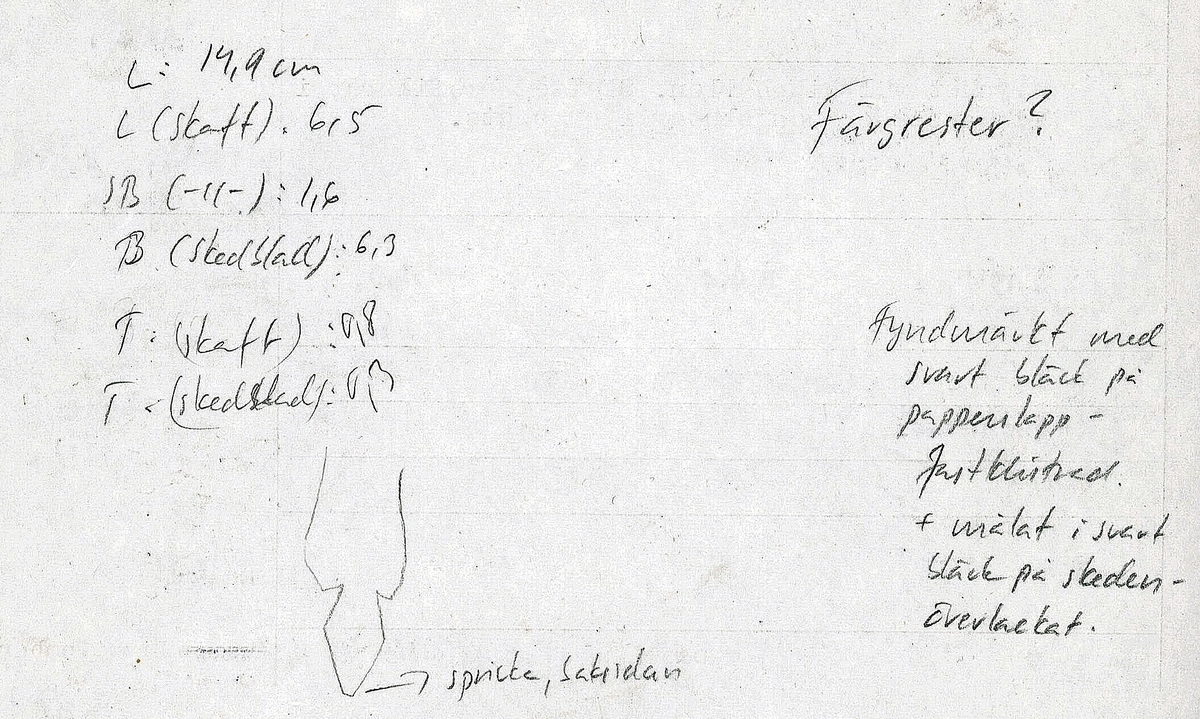 L: 14,9 cm
L (skaft). 6,5
SB (-11-) : 1,6
B (skedblad): 6,3
T. (skaft) : 0,8
T. (skedblad): 0,3
Färgrester?
Fyndmärkt med
svart bläck på
papperslapp -
fastklistrad.
+ målat i svart
bläck på skeden -
överlackat.
spricka, baksidan